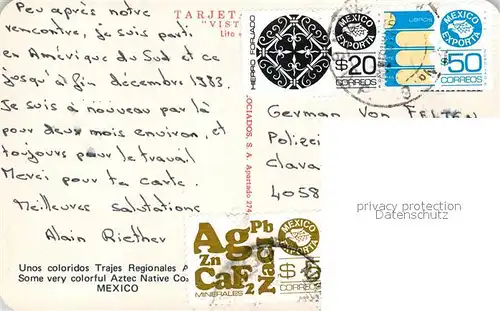 Peu après notre
rencontre, je suis parti
en Amérique du Sud et ce
jusqu'à fin décembre 1983.
Je suis à nouveau par là
pour deux mois environ, et
toujours pour le travail
Merci pour ta carte.
Meilleures salutations
Alain Riether
Unos coloridos Trajes Regionales A
Some very colorful Aztec Native Co
MEXICO
TARJETA
"VIST
Lito
OCIADOS, S. A. Apartado 274,
HIERRO FORJADO
MEXICO EXPORTA
$20
CORREOS
LIBROS
MEXICO EXPORTA
$50
CORREOS
German Von FELTEN
Polizei
Clava
4058
privacy protection
Datenschutz
Ag Pb
Zn
CaF2
MINERALES
MEXICO EXPORTA
CORREOS